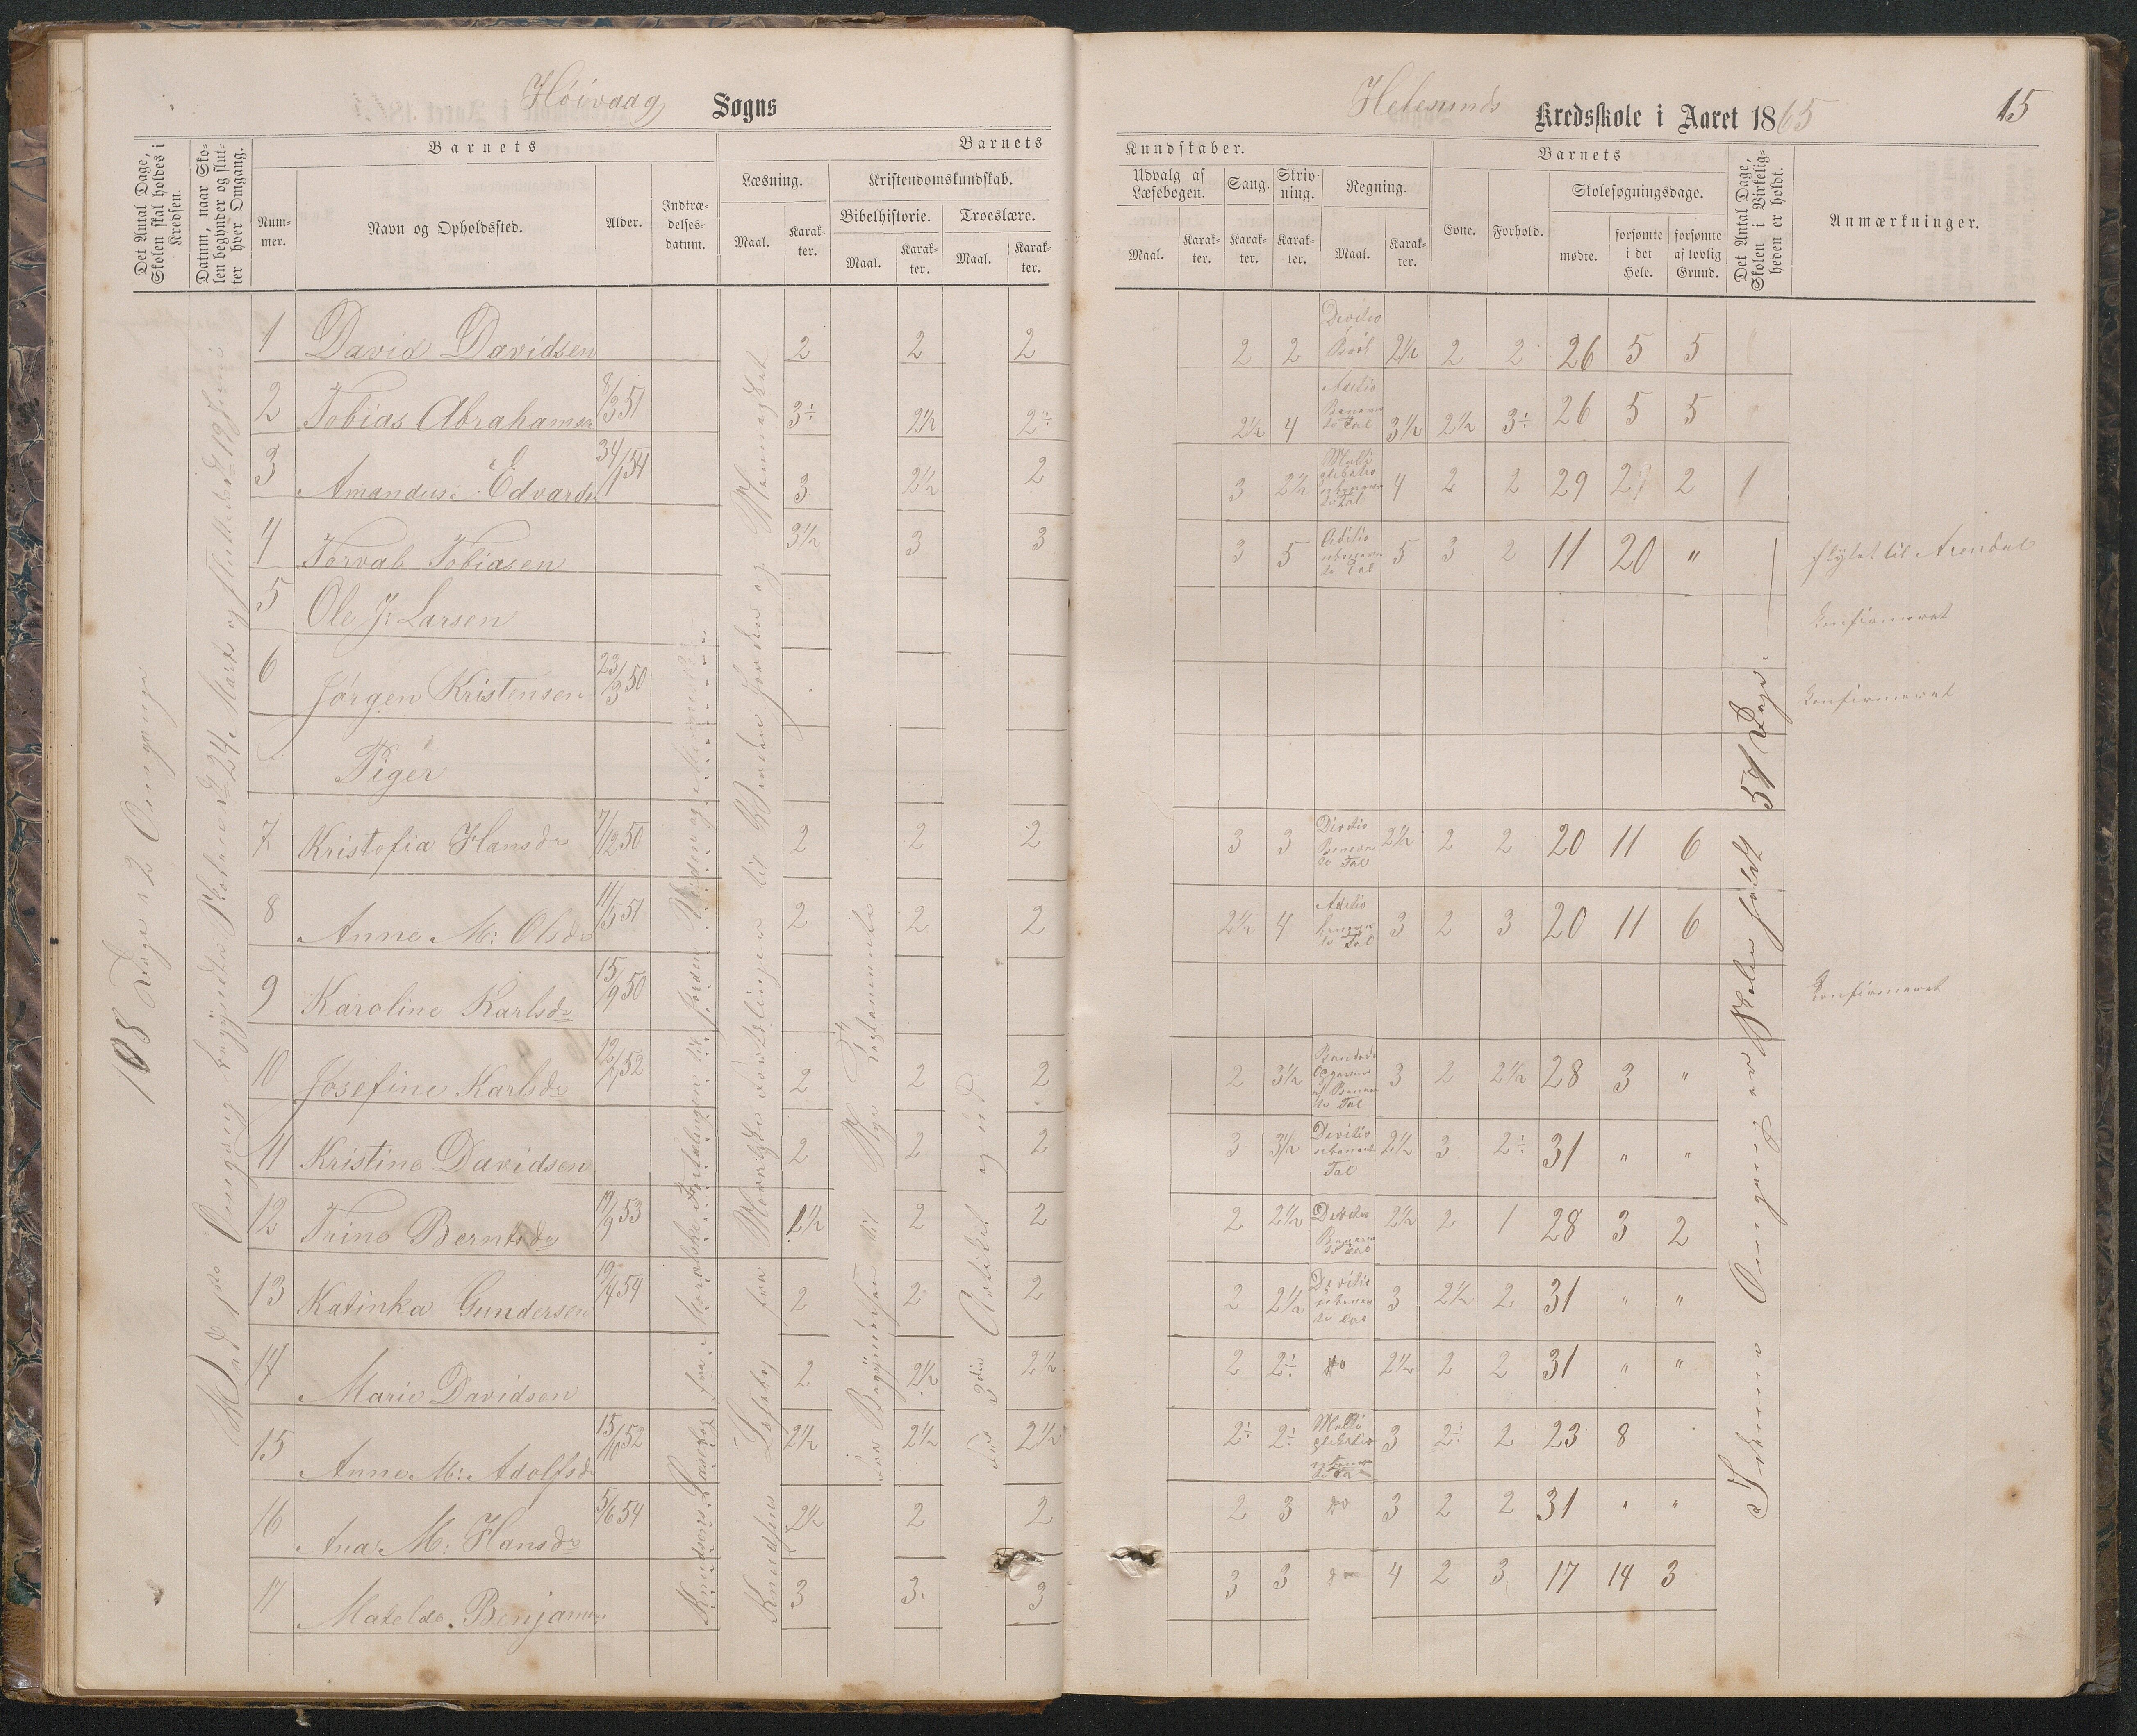 Höivaag Sogns
Helesunds Kredsskole i Aaret 1865 15
Det Antal Dage, Skolen skal holdes i Kredsen.
Datum, naar Skolen begynder og slutter hver Omgang.
Barnets
Nummer.
Navn og Opholdssted.
Alder.
Indtrædelsesdatum.
Barnets
Læsning.
Maal.
Karakter.
Kristendomskundskab.
Bibelhistorie.
Maal.
Karakter.
Troeslære.
Maal.
Karakter.
Kundskaber.
Udvalg af Læsebogen.
Maal.
Karakter.
Sang.
Karakter.
Skrivning.
Karakter.
Regning.
Maal.
Karakter.
Barnets
Evne.
Forhold.
Skolesøgningsdage.
mødte.
forsømte i det Hele.
forsømte af lovlig Grund.
Det Antal Dage, Skolen i Virkeligheden er holdt.
Anmærkninger.
108 Dage 2 Omgange
1 David Davidsen 2 2 2 2 2 2½ 2 2 26 5 5
2 Tobias Abrahamsen 8/3 51 3÷ 2½ 2÷ 2½ 4 3½ 2½ 3÷ 26 5 5
3 Amandus Edvards 3 2½ 2 3 2½ 4 2 2 29 2 2 1
4 Torvald Tobiasen 3½ 3 3 3 5 5 3 2 11 20 " flytet til Arendal
5 Ole J: Larsen Konfirmeret
6 Jörgen Kristensen 23/3 50 Konfirmeret
Piger
7 Kristofia Hansdr 7/12 50 2 2 2 3 3 2½ 2 2 20 11 6
8 Anne M: Olsdr 11/5 51 2 2 2 2½ 4 3 2 3 20 11 6
9 Karoline Karlsdr 15/9 50 Konfirmeret
10 Josefine Karlsdr 12/7 52 2 2 2 2 3½ 3 2 2½ 28 3 "
11 Kristine Davidsen 2 2 2 3 3½ Devitio 2½ 3 2÷ 31 " "
12 Trine Berntsdr 19/9 53 1½ 2 2 2 2½ 2½ 2 1 28 3 2
13 Katinka Gundersen 19/4 54 2 2 2 2 2½ Devitio 3 2½ 2 31 " "
14 Marie Davidsen 2 2½ 2½ 2 2÷ do 2½ 2 2 31 " "
15 Anne M: Adolfsdr 15/10 52 2½ 2½ 2½ 2÷ 2÷ 3 2÷ 2 23 8
16 Ana M: Hansdr 5/6 54 2½ 2 2 2 3 do 3 2 2 31 " "
17 Matelde Benjamins 3 3 3 3 3 do 4 2 3 17 14 3
Knudsens Læsebog fra Moralske Fortælinger til Jorden Verden og Mennesket
Knudsens Læsebog fra Moralske Fortælinger til Verden Jorden og Mennesket
fra Begyndelsen til Nye Testamente
2den Artikel og ud
I denne Omgang er Skolen holdt 54 Dage